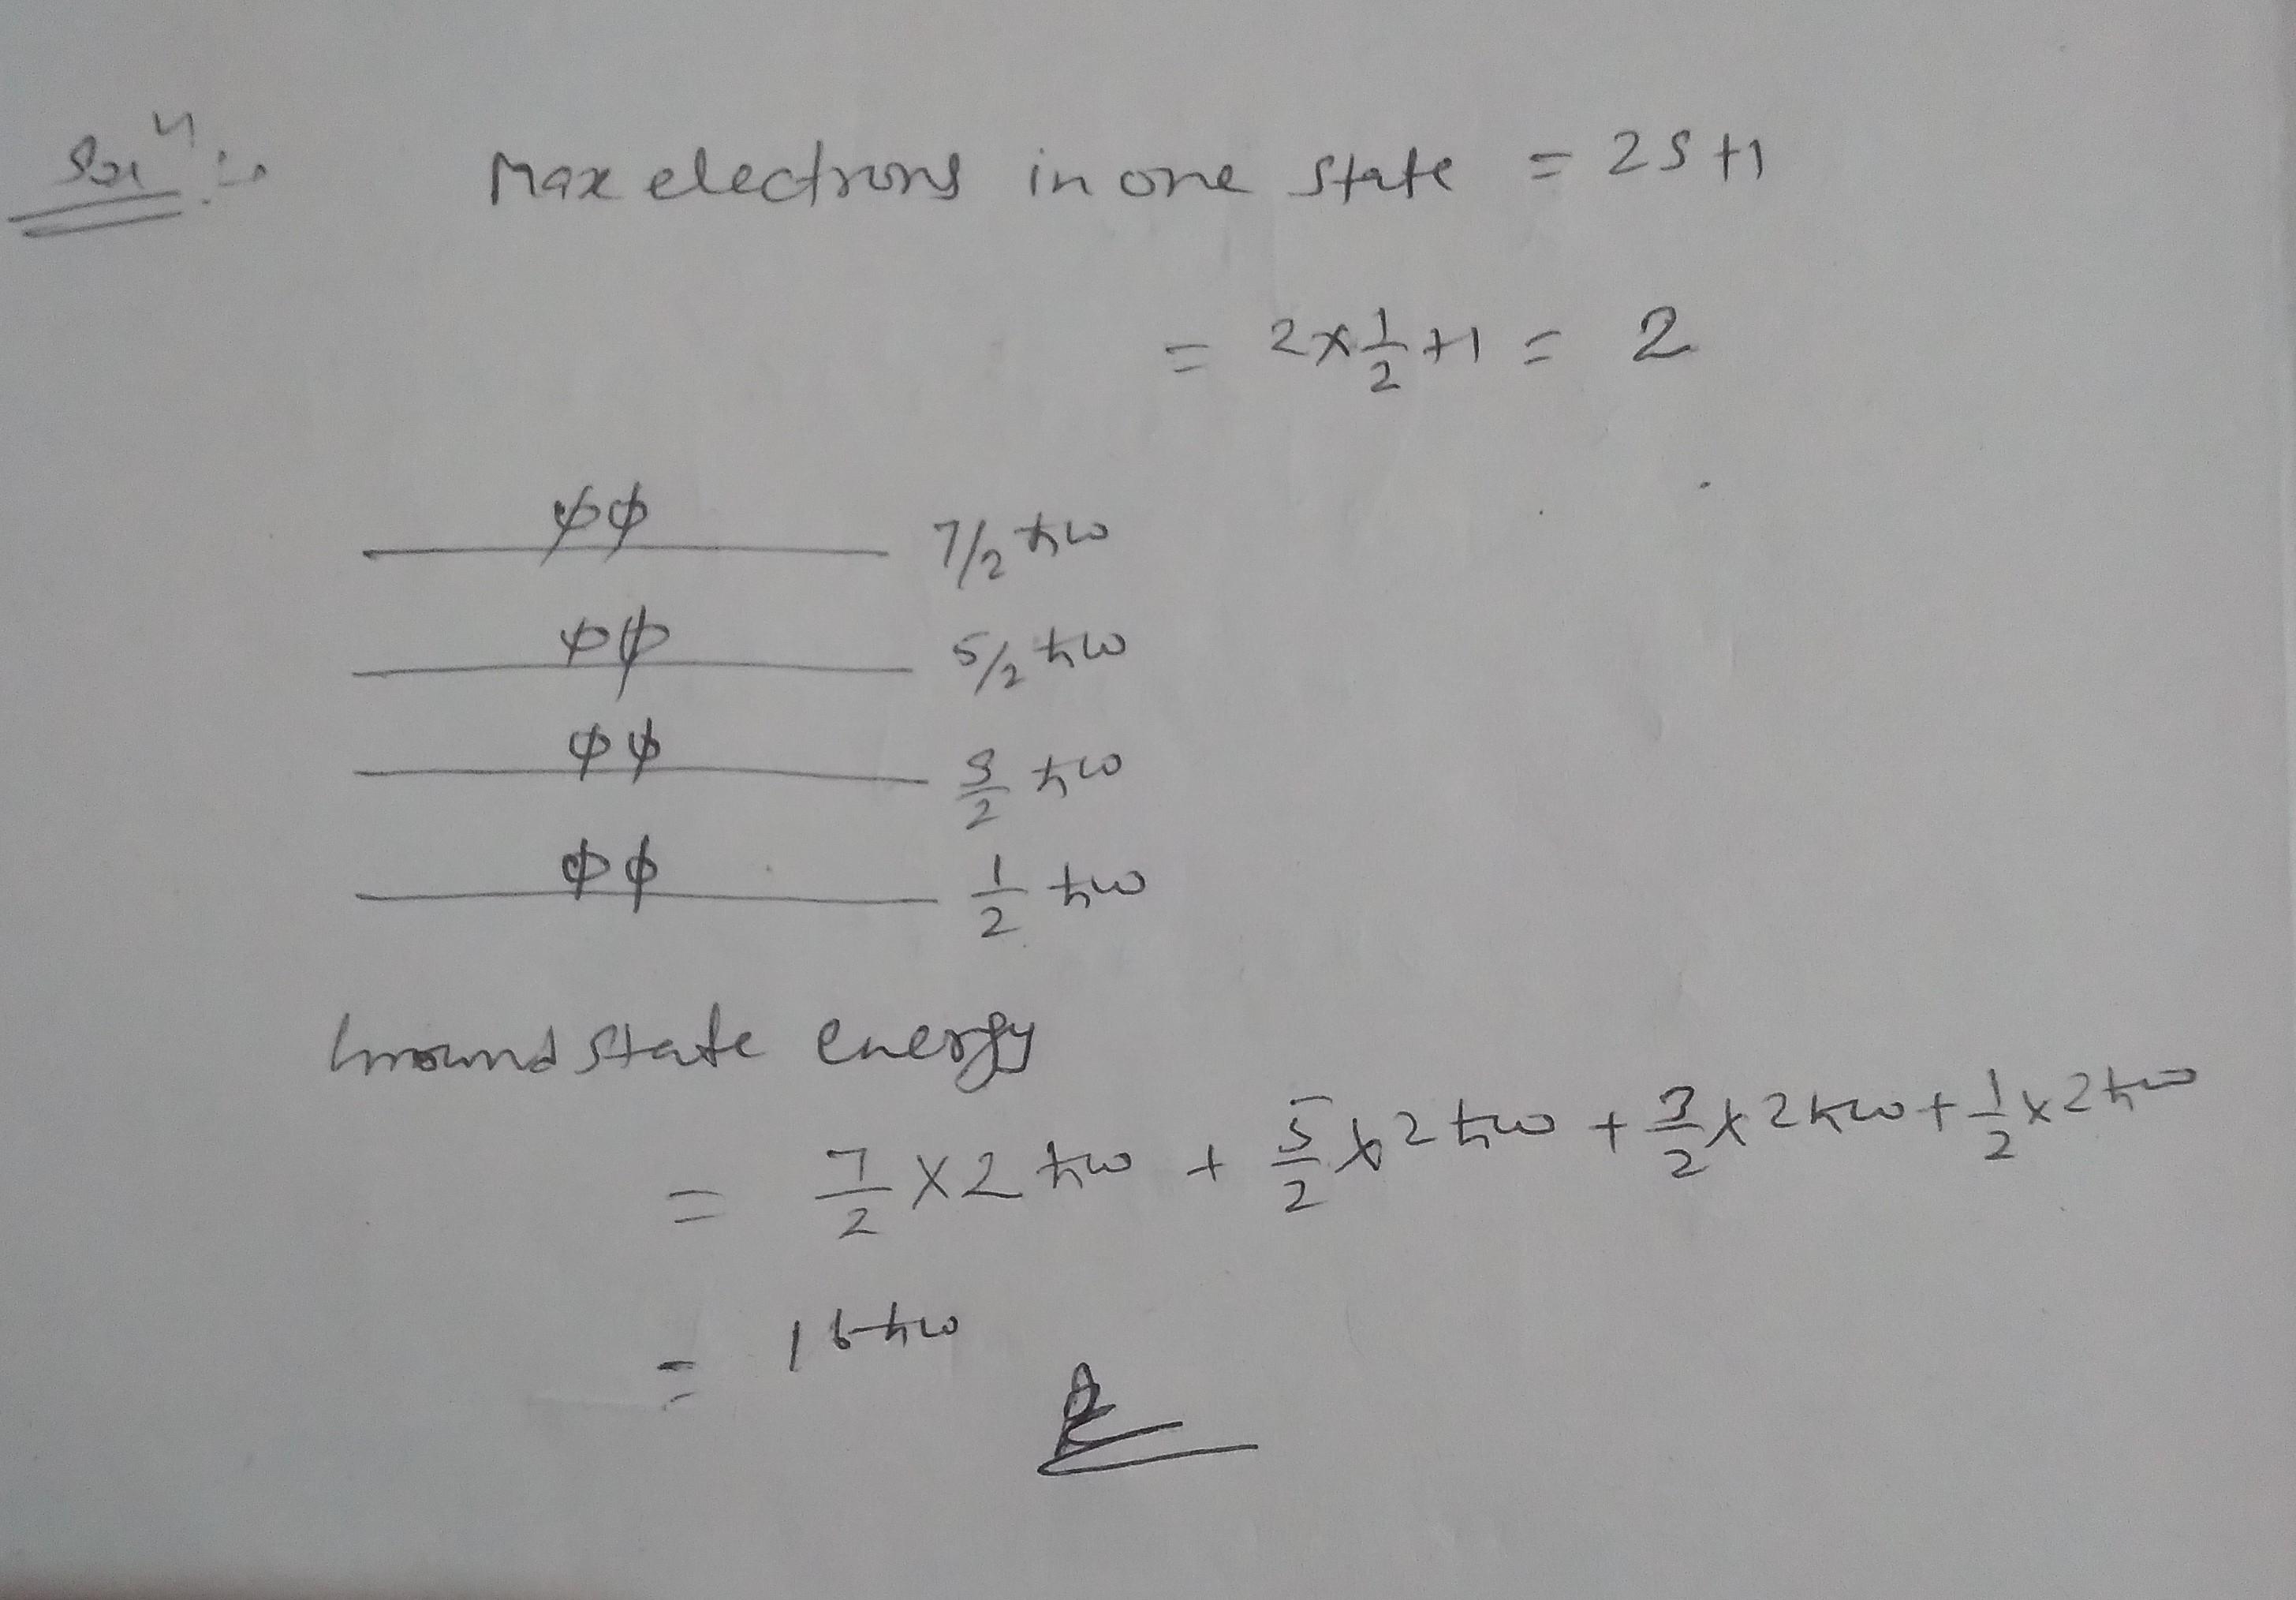 Solⁿ :-
Max electrons in one state = 2S+1
= 2×1/2+1 = 2
ϕϕ 7/2 ħω
ϕϕ 5/2 ħω
ϕϕ 3/2 ħω
ϕϕ 1/2 ħω
Ground state energy
= 7/2 ×2 ħω + 5/2 ×2 ħω + 3/2 × 2ħω + 1/2 × 2ħω
= 16ħω